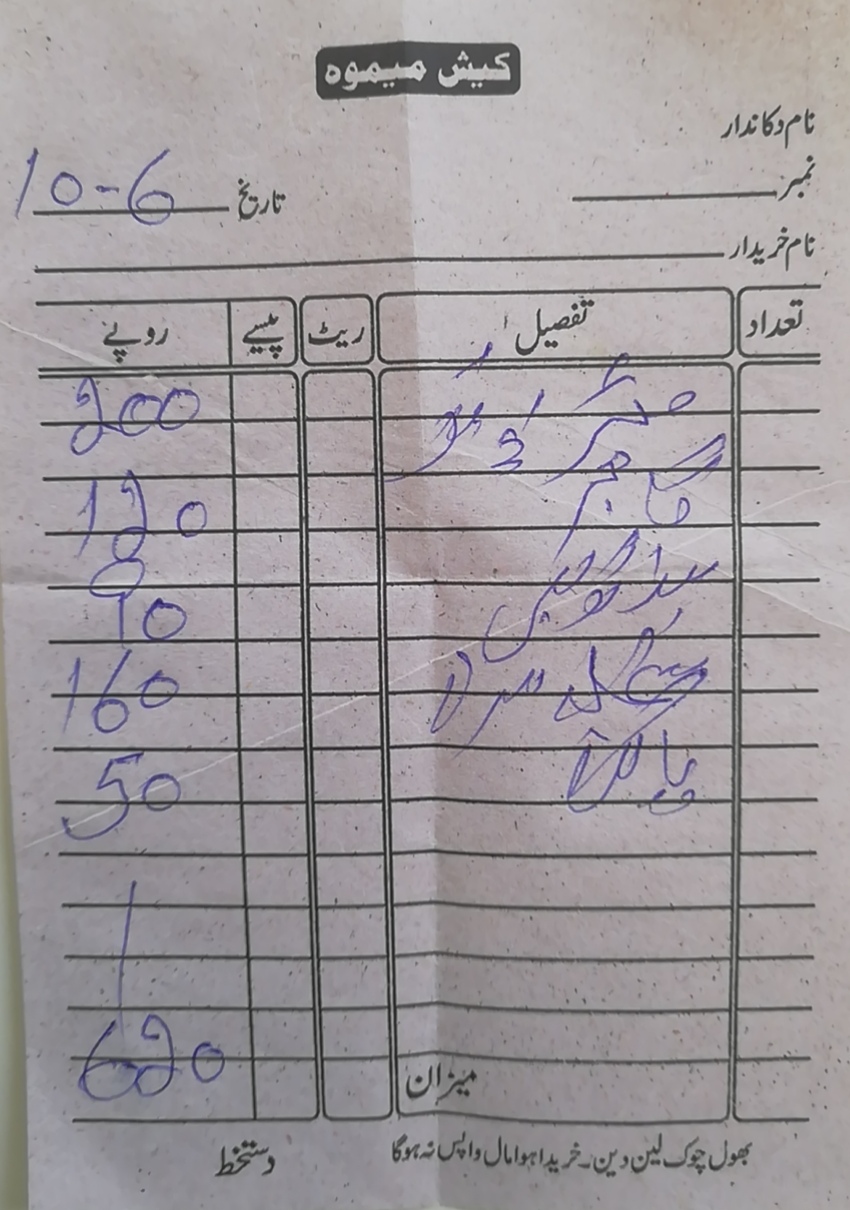 کیش میمو
نام دکاندار
نمبر تاریخ 10-6
نام خریدار
تعداد تفصیل ریٹ پیسے روپے
مٹر 200
گاجر 120
90
شملہ مرچ 160
پالک 50
میزان 620
بھول چوک لین دین۔ خریدا ہوا مال واپس نہ ہوگا دستخط